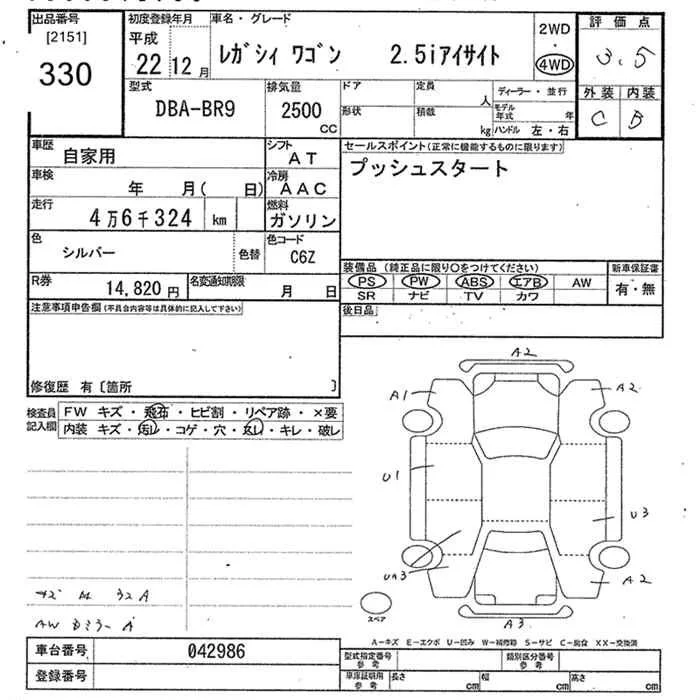 出品番号
[2151]
330
初度登録年月
平成
22 12 月
車名・グレード
レガシィ ワゴン 2.5iアイサイト
2WD
・
4WD
評価点
3.5
外装 内装
C B
型式
DBA-BR9
排気量
2500
CC
ドア
形状
定員
人
積載
kg
ディーラー・並行
モデル年式 年
ハンドル 左・右
車歴
自家用
シフト
AT
車検
年 月( 日)
冷房
AAC
走行
4万6千324 km
燃料
ガソリン
色
シルバー
色替
色コード
C6Z
R券
14,820 円
名変通知期限
月 日
セールスポイント(正常に機能するものに限ります)
プッシュスタート
装備品 (純正品に限り○をつけてください)
PS PW ABS エアB AW
SR ナビ TV カワ
新車保証書
有・無
後日品
注意事項申告欄(不具合内容等は具体的に記入して下さい)
修復歴 有〔箇所 〕
検査員
記入欄
FW キズ・飛石・ヒビ割・リペア跡・×要
内装 キズ・汚レ・コゲ・穴・・キレ・破レ
A2
A1
A2
U1
U3
A2
A3
スペア
AW
A-キズ E-エクボ U-凹み W-補修跡 S-サビ C-腐食 XX-交換済
車台番号
042986
登録番号
型式指定番号
参考
類別区分番号
参考
車庫証明用
参考
長さ cm
幅 cm
高さ cm